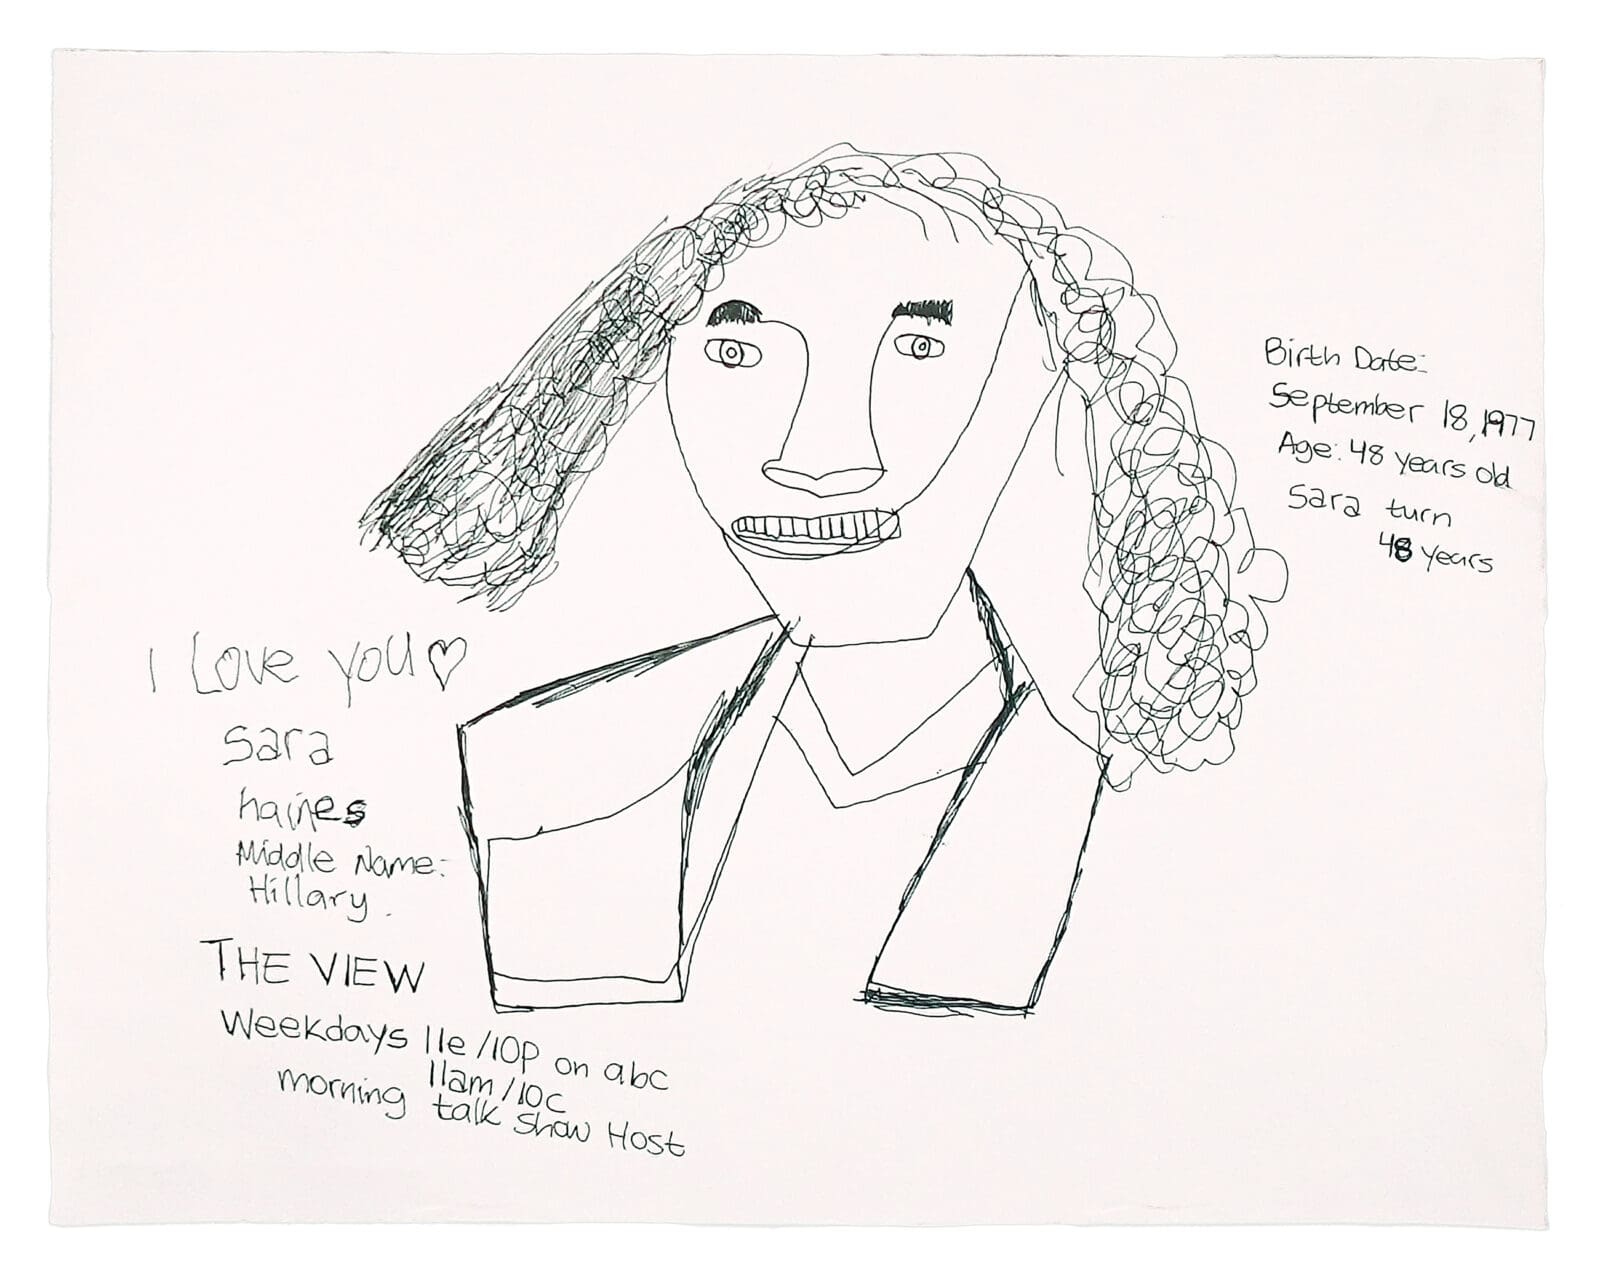 I Love you♡
Sara
haines
Middle Name:
Hillary.
THE VIEW
Weekdays 11e/10p on abc
11am/10c
morning talk show Host
Birth Date:
September 18, 1977
Age: 48 years old
Sara turn
48 years